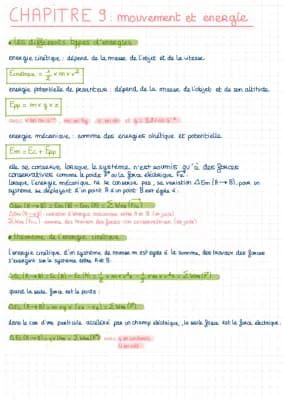 CHAPITRE 9: mouvement et energie
• les différents types d'energies
energie cinétique : dépend de la masse de l'objet et de la vitesse
Ecinétique = 1/2 x m x v²
energie potentielle de pesanteur : dépend de la masse de l'objet et de son altitude
Epp = m x g x z
energie mécanique : somme des energies cinétique et potentielle
Em = Ec + Epp
elle se conserve lorsque le système n'est soumis qu'à des forces
conservatives comme le poids P ou la force électrique Fe.
lorsque l'énergie mécanique ne se conserve pas, sa variation ΔEm (A→B), pour un
système se déplaçant d'un point A à un point B est égale à :
ΔEm (A→B) : variation d'énergie mécanique entre A et B (en joule)
• théorème de l'energie cinétique
l'énergie cinétique d'un système de masse m est égale à la somme des travaux des forces
s'exerçant sur le système entre A et B.
quand la seule force est le poids :
dans le cas d'une particule accéléré par un champ électrique, la seule force est la force électrique :